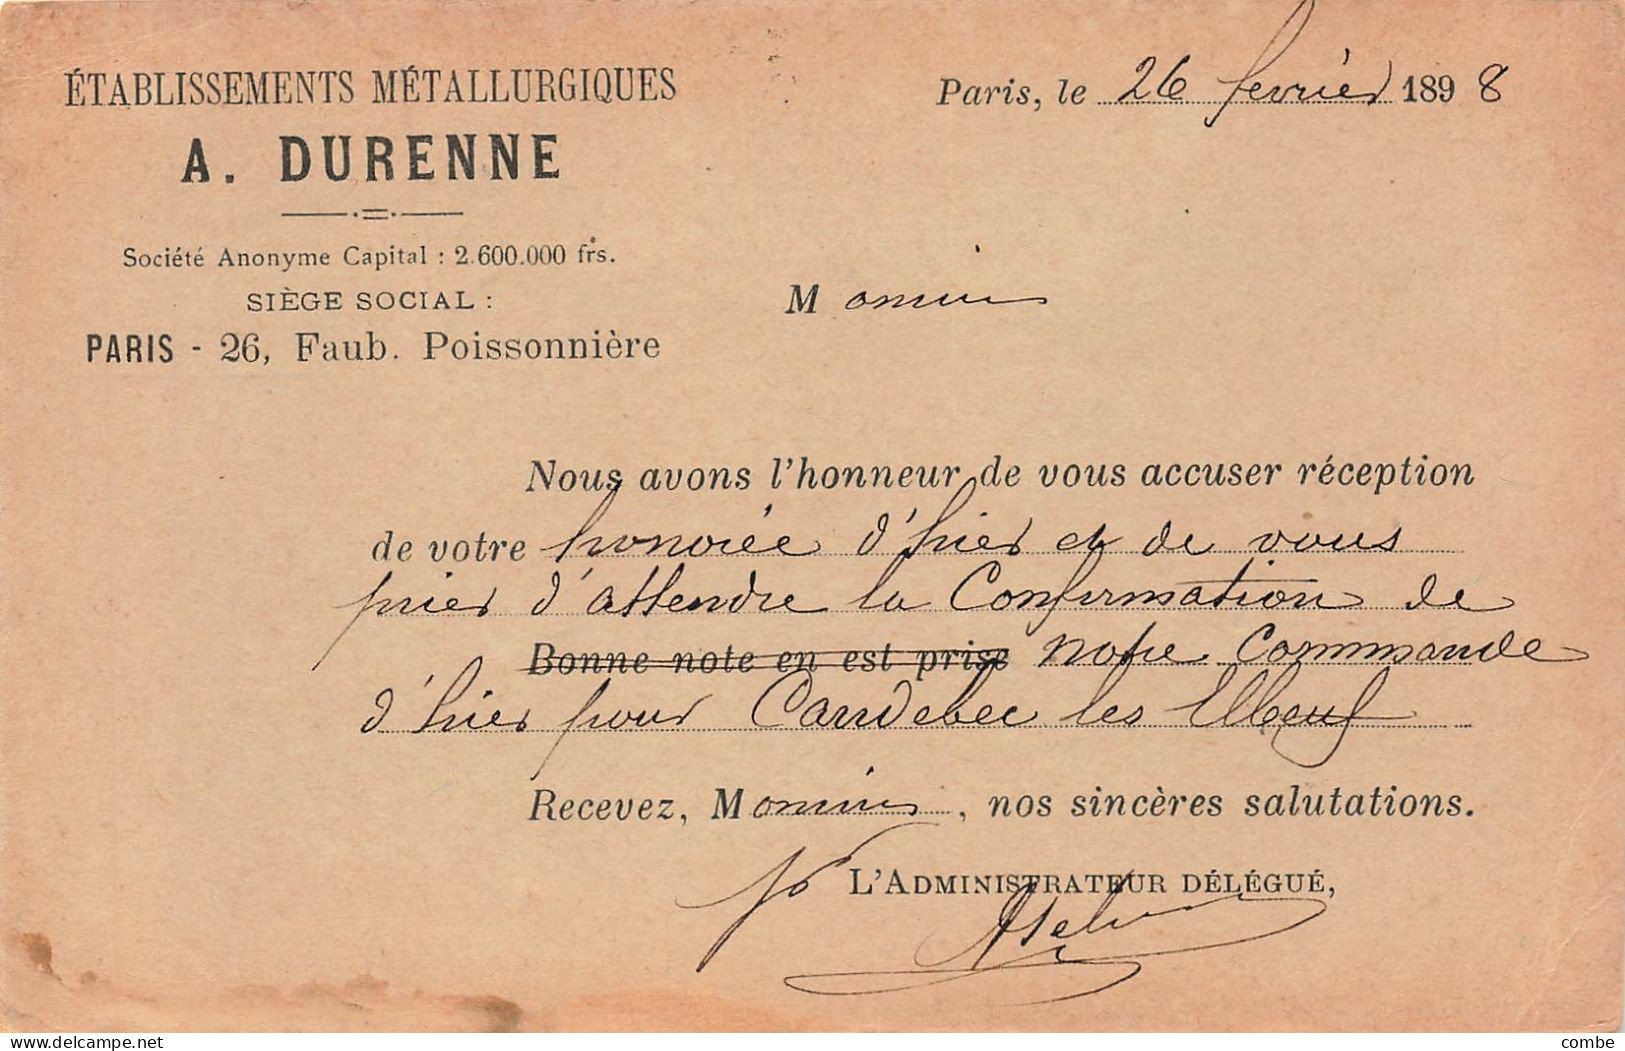 ÉTABLISSEMENTS MÉTALLURGIQUES
A. DURENNE
Société Anonyme Capital : 2.600.000 frs.
SIÈGE SOCIAL :
PARIS - 26, Faub. Poissonnière
Paris, le 26 fevrier 1898
Monsieur
Nous avons l'honneur de vous accuser réception
de votre honorée d'hier et de vous
prier d'attendre la Confirmation de
Bonne note en est prise notre Commande
d'hier pour Caudebec les Elbeuf
Recevez, Monsieur, nos sincères salutations.
L'ADMINISTRATEUR DÉLÉGUÉ,
delcampe.net
combe